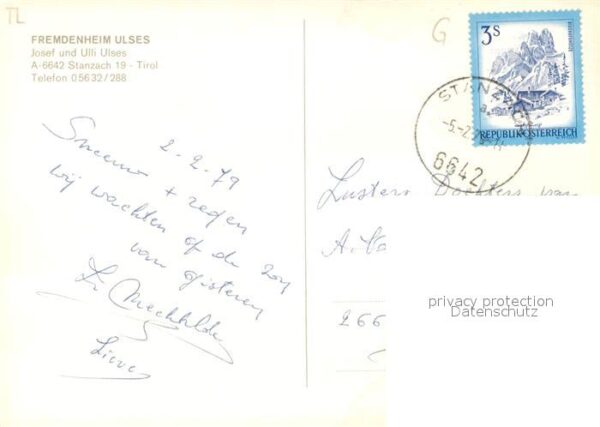 TL
FREMDENHEIM ULSES
Josef und Ulli Ulses
A-6642 Stanzach 19 - Tirol
Telefon 05632/288
G
3 S
REPUBLIK ÖSTERREICH
STANZACH
6642
2-2-79
Sneeuw + regen
wij wachten op de zon
van gisteren
Zr. Mechtilde
Lieve
Zusters Dochters van
266
privacy protection
Datenschutz